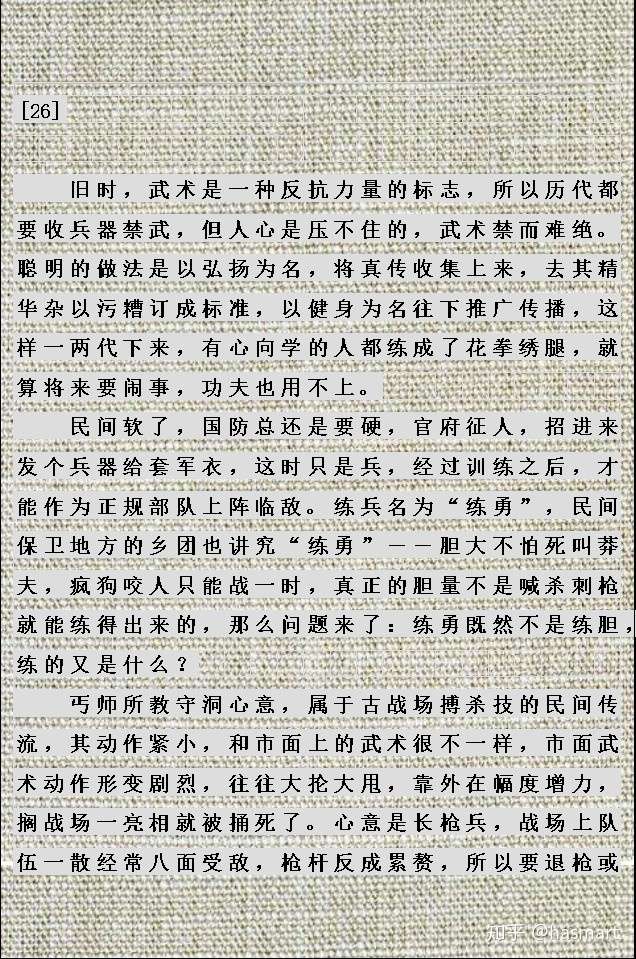 [26]
旧时，武术是一种反抗力量的标志，所以历代都
要收兵器禁武，但人心是压不住的，武术禁而难绝。
聪明的做法是以弘扬为名，将真传收集上来，去其精
华杂以污糟订成标准，以健身为名往下推广传播，这
样一两代下来，有心向学的人都练成了花拳绣腿，就
算将来要闹事，功夫也用不上。
民间软了，国防总还是要硬，官府征人，招进来
发个兵器给套军衣，这时只是兵，经过训练之后，才
能作为正规部队上阵临敌。练兵名为“练勇”，民间
保卫地方的乡团也讲究“练勇”－－胆大不怕死叫莽
夫，疯狗咬人只能战一时，真正的胆量不是喊杀刺枪
就能练得出来的，那么问题来了：练勇既然不是练胆，
练的又是什么？
丐师所教守洞心意，属于古战场搏杀技的民间传
流，其动作紧小，和市面上的武术很不一样，市面武
术动作形变剧烈，往往大抡大甩，靠外在幅度增力，
搁战场一亮相就被捅死了。心意是长枪兵，战场上队
伍一散经常八面受敌，枪杆反成累赘，所以要退枪或
知乎 @hasmart